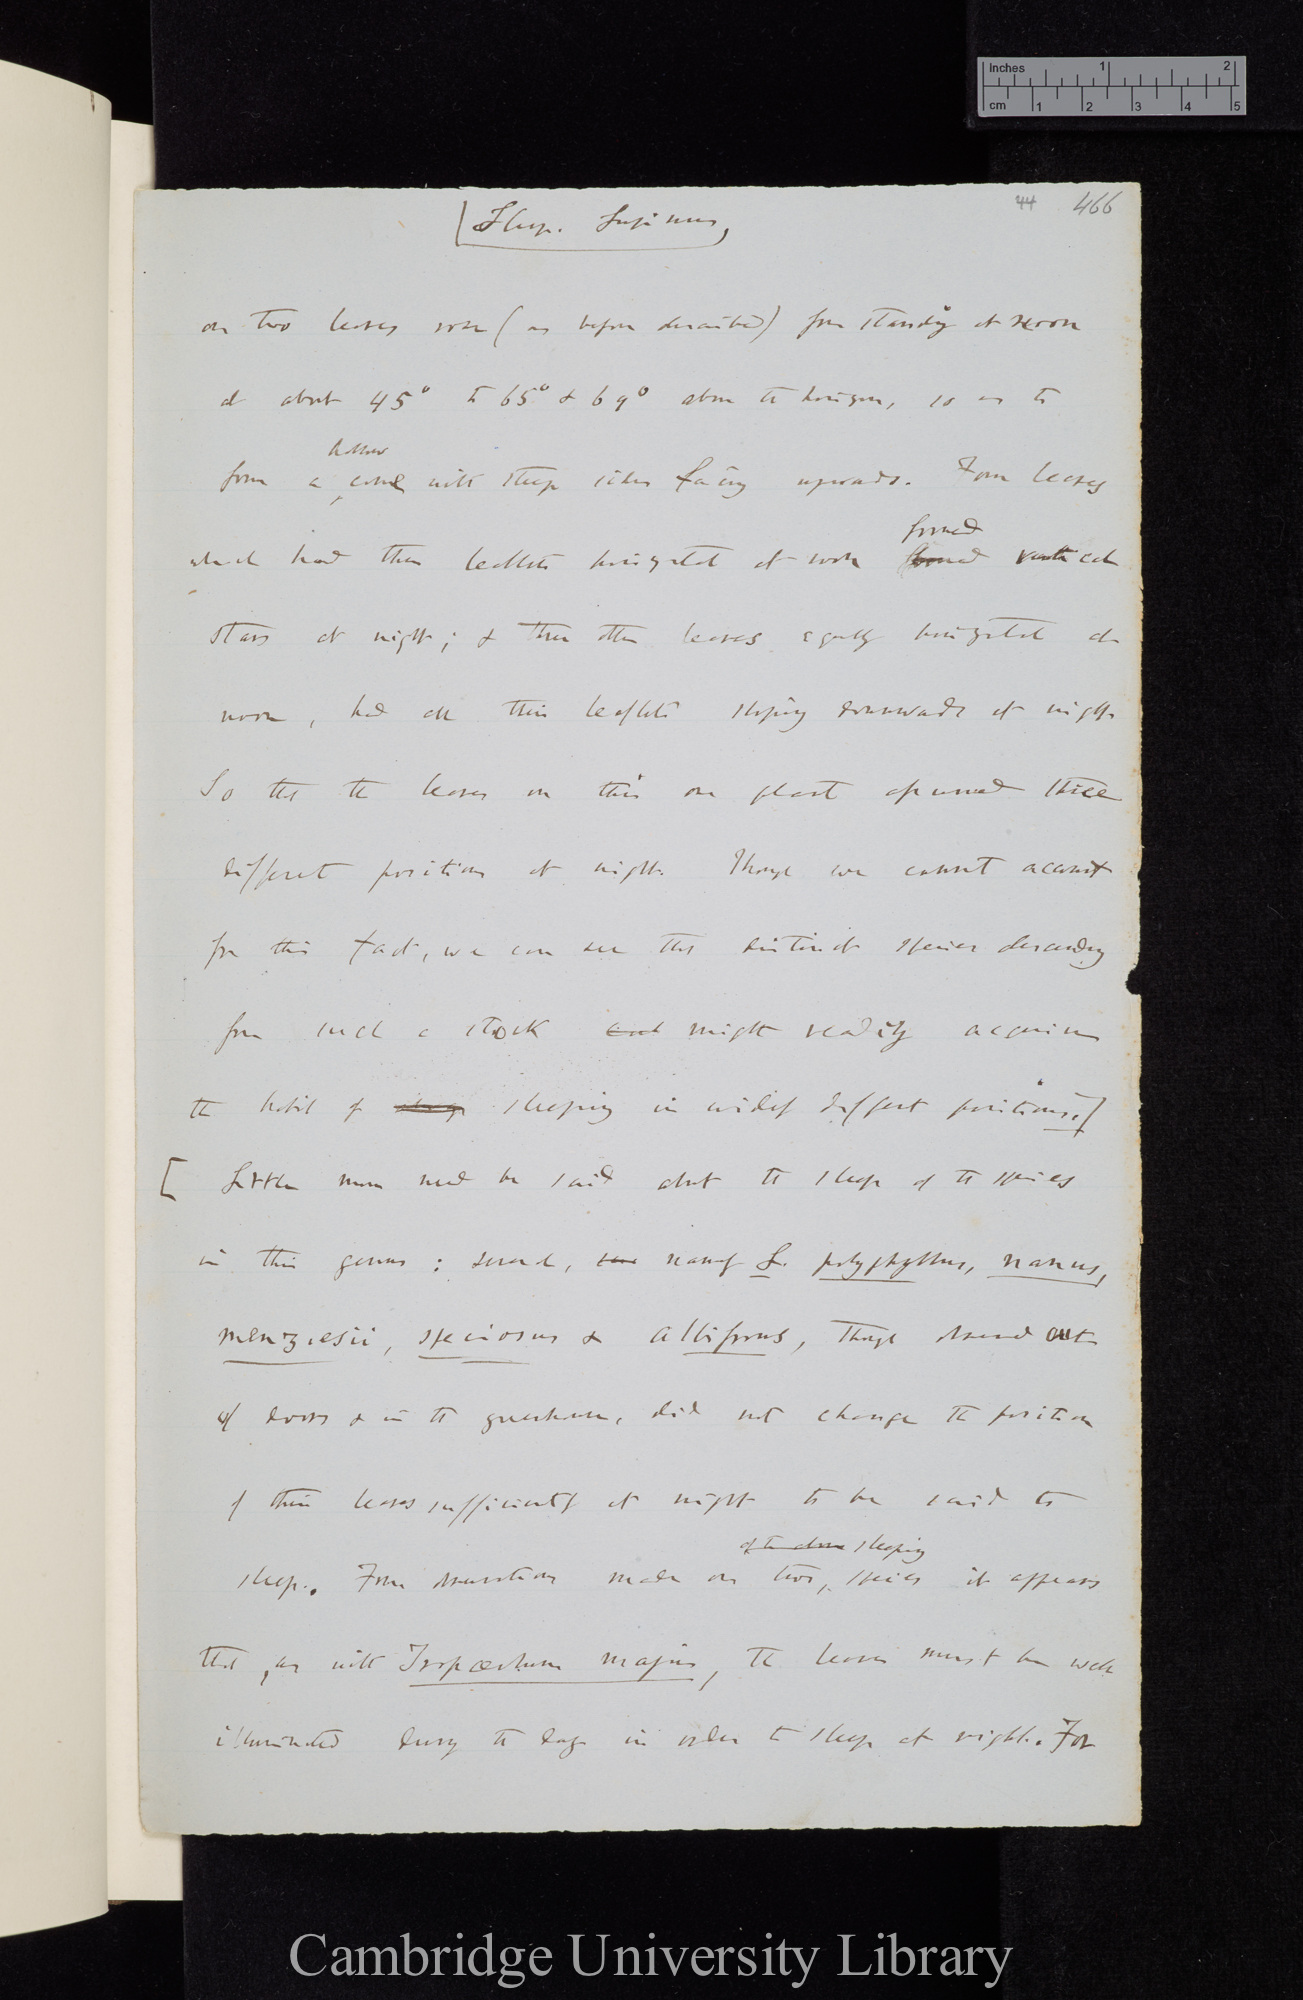 Inches 1 2
cm 1 2 3 4 5
44 466
Sleep. Lupinus,
on two leaves rose (as before described) from standing at noon
at about 45° to 65° & 69° above the horizon, so as to
hollow
form a cone with steep sides facing upwards. Four leaves
formed
which had their leaflets horizontal at noon formed vertical
stars at night; & three other leaves equally horizontal at
noon, had all their leaflets sloping downwards at night.
So that the leaves on this one plant assumed three
different positions at night. Though we cannot account
for this fact, we can see that distinct species descending
from such a stock might readily acquire
the habit of sleeping in widely different positions.]
[ Little more need be said about the sleep of the species
in this genus; several, namely L. polyphyllus, nanus,
menziesii, speciosus & albifrons, though observed out
of doors & in the greenhouse, did not change the position
of their leaves sufficiently at night to be said to
of the above sleeping
sleep. From observations made on two, species it appears
that, as with Tropæolum majus, the leaves must be well
illuminated during the day in order to sleep at night. For
Cambridge University Library